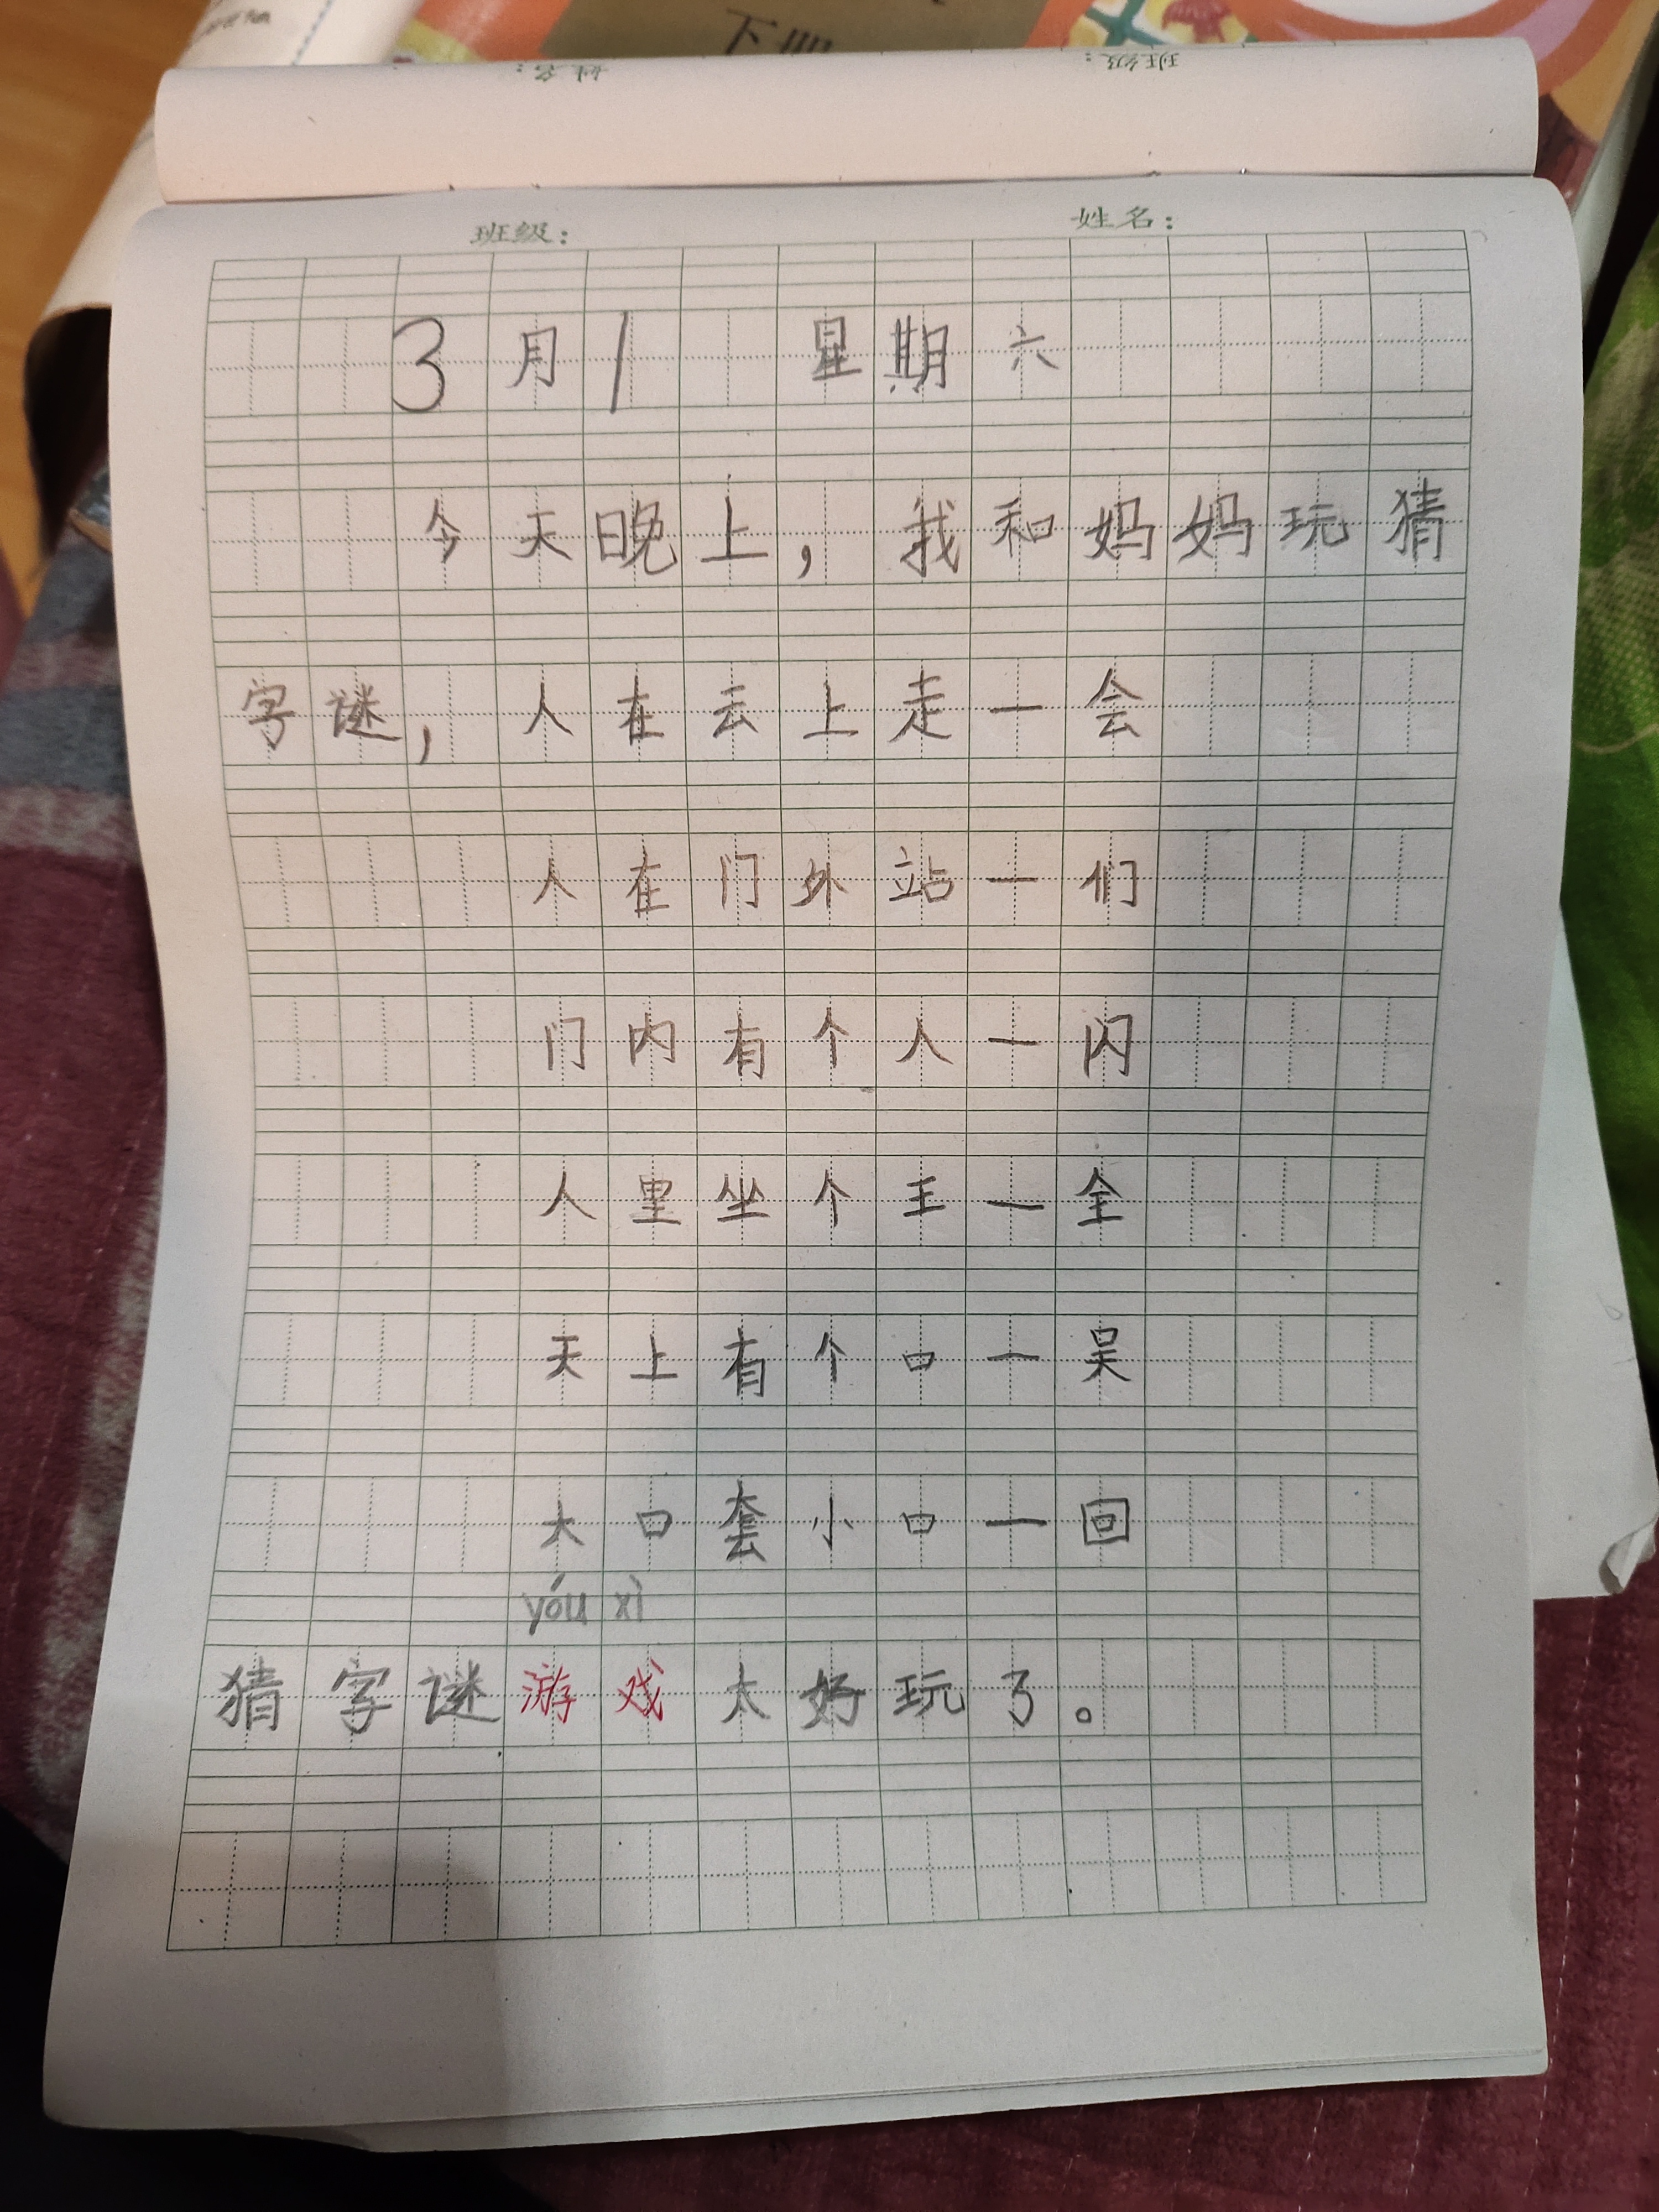 下册
姓名: 班级:
班级: 姓名:
3月1 星期六
今天晚上,我和妈妈玩猜
字谜,人在云上走一会
人在门外站一们
门内有个人一闪
人里坐个王一全
天上有个口一吴
大口套小口一回
yóu xì
猜字谜游戏太好玩了。